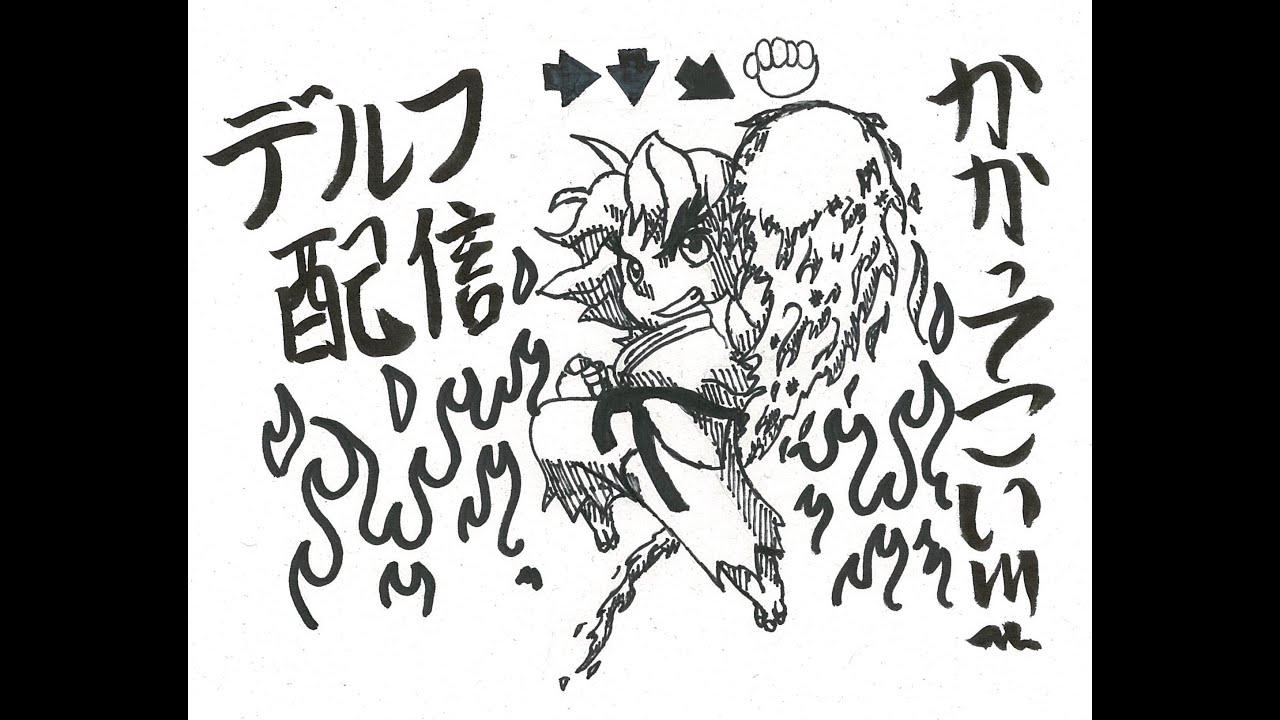 デルフ
配信
かかってこい!!!